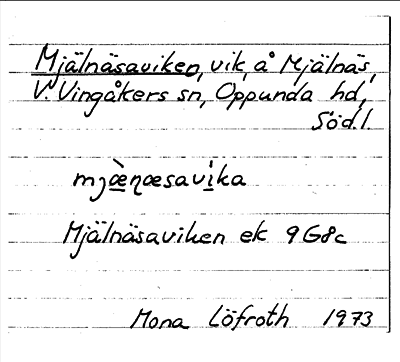 Mjälnäsaviken, vik, å Mjälnäs,
V. Vingåkers sn, Oppunda hd,
Söd.l.
mjæ̀ɳæsavika
Mjälnäsaviken ek 9G8c
Mona Löfroth 1973